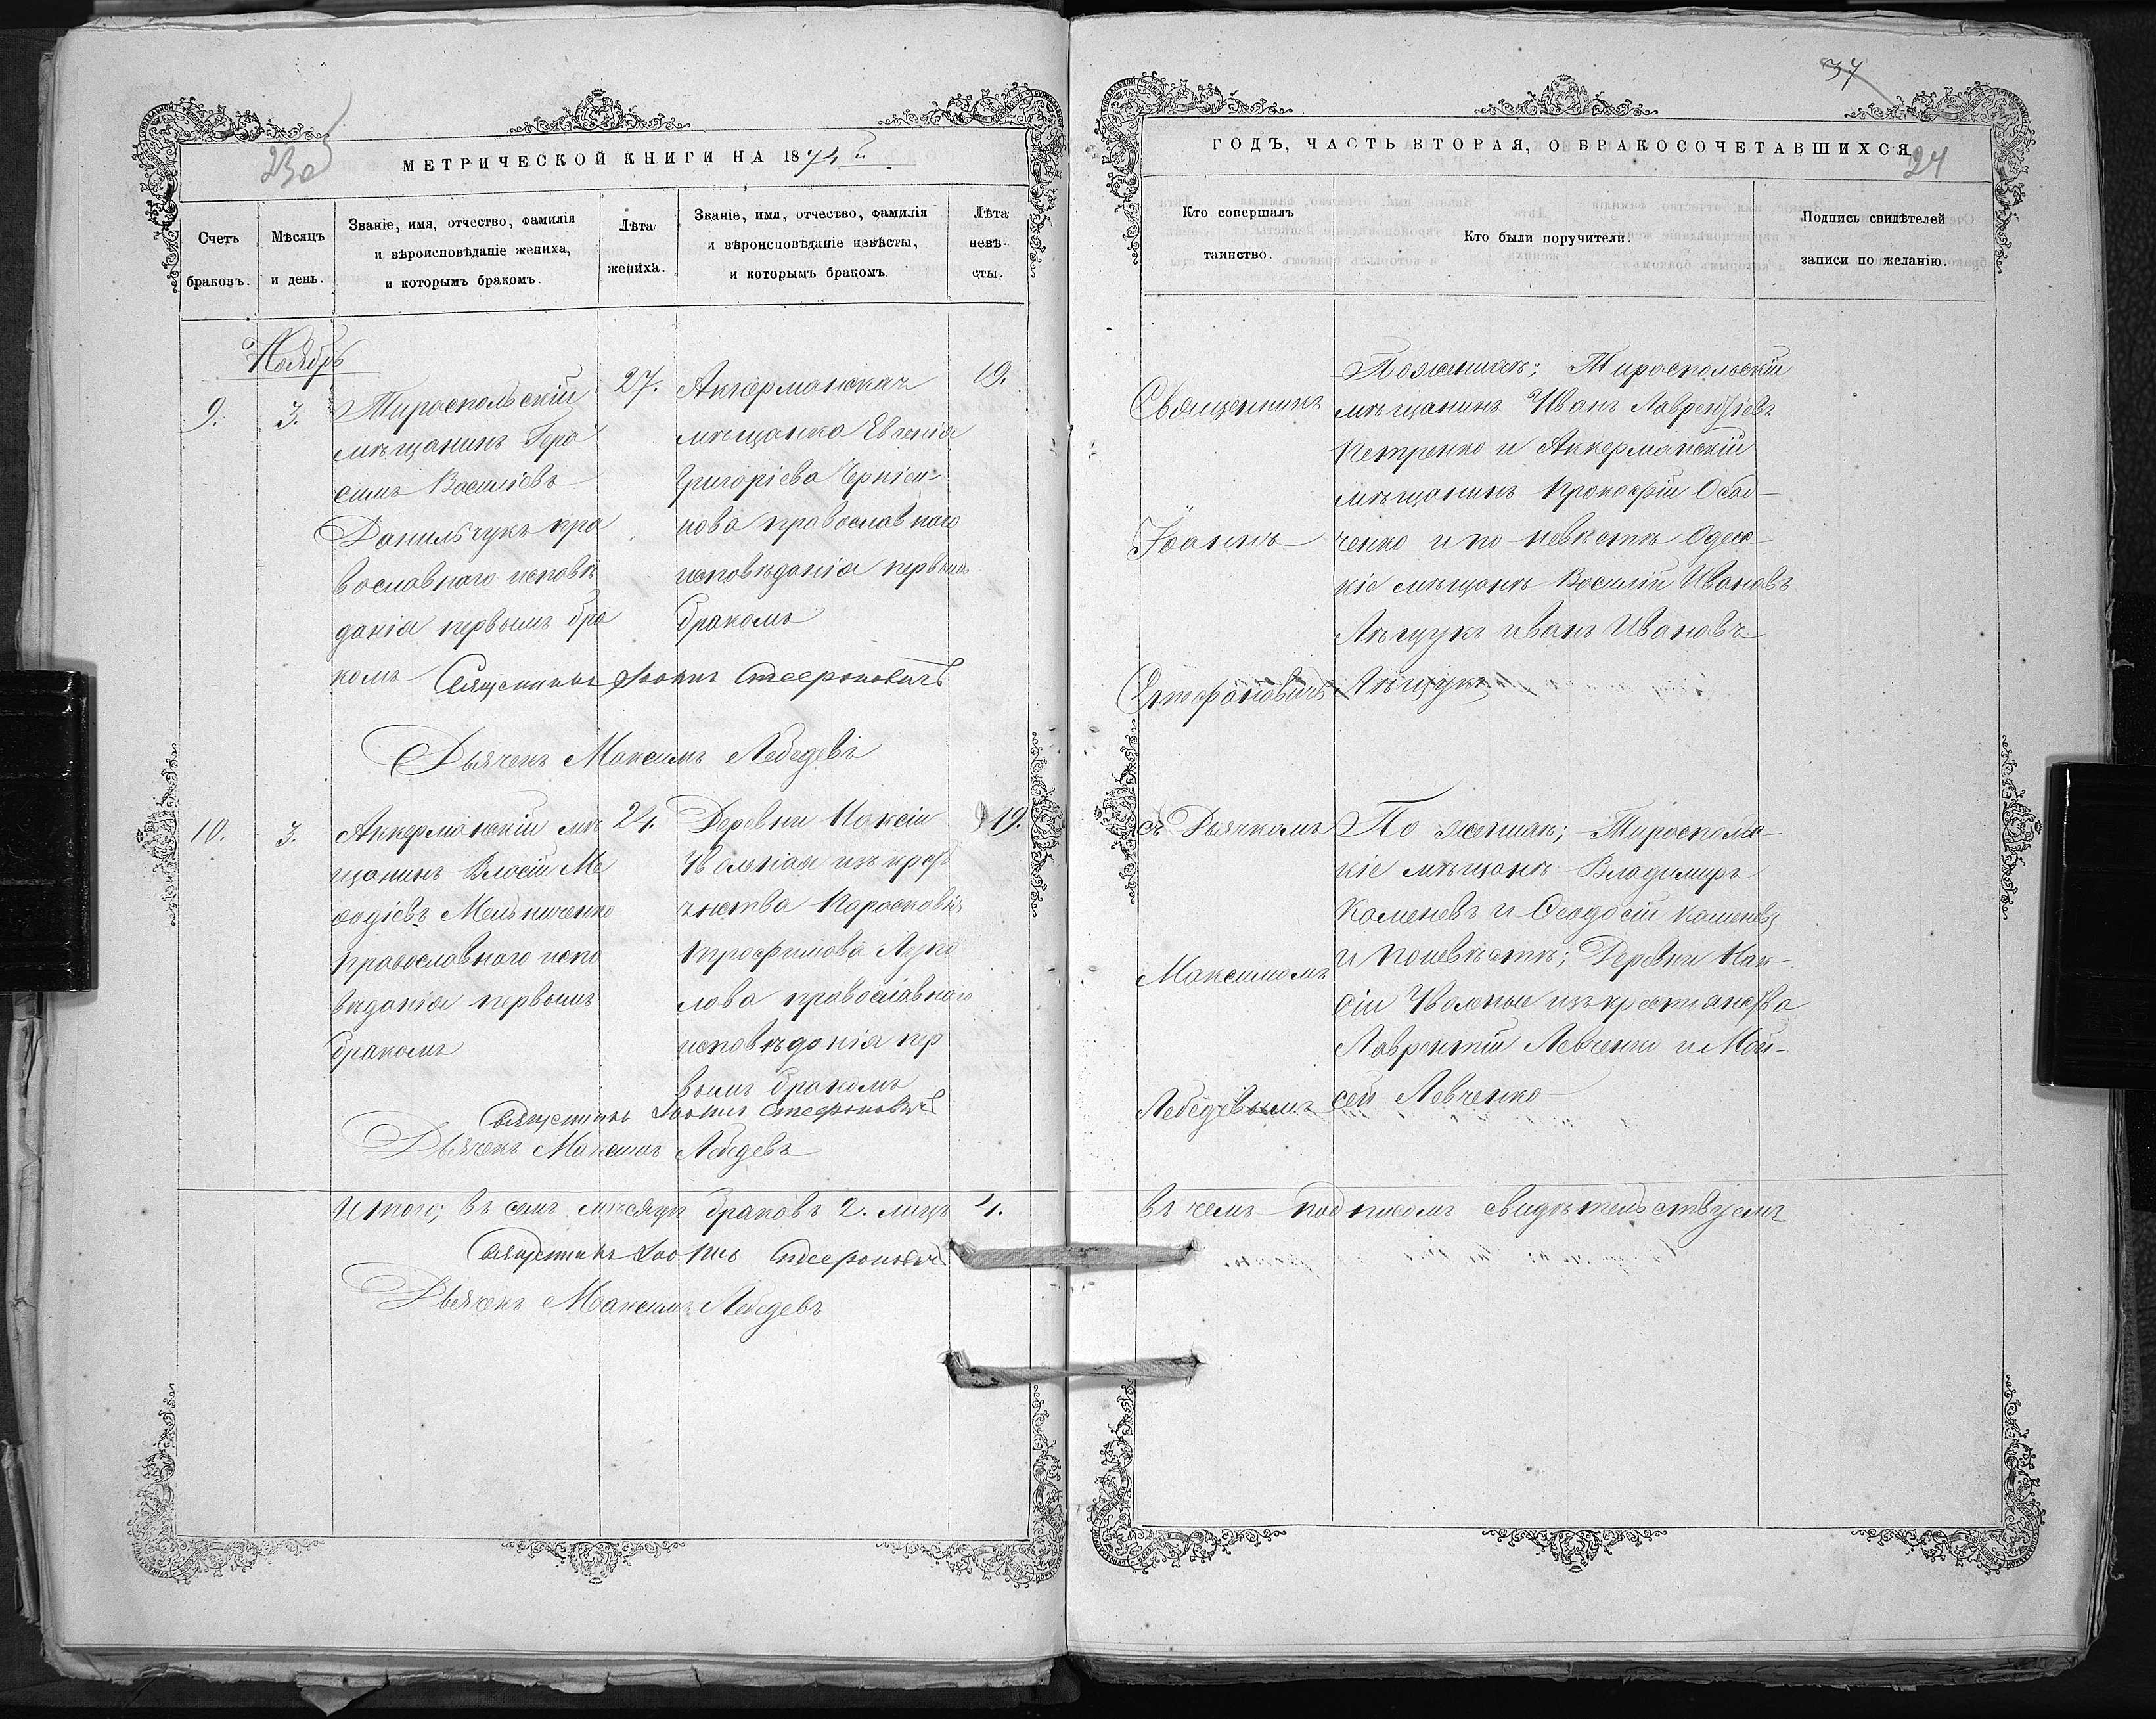 230
МЕТРИЧЕСКОЙ КНИГИ НА 1874й
Счетъ
браковъ.
Мѣсяцъ
и день.
Званіе, имя, отчество, фамилія
и вѣроисповѣданіе жениха,
и которымъ бракомъ.
Лѣта
жениха.
Званіе, имя, отчество, фамилія
и вѣроисповѣданіе невѣсты,
и которымъ бракомъ
Лѣта
невѣ-
сты.
Ноябрь
9.
3.
Тираспольскій
мѣщанинъ Гера
симъ Василіевъ
Данильчукъ пра
вославнаго исповѣ
данія первымъ бра
комъ
27.
Аккерманская
мѣщанка Евгенія
Григоріева
нова православнаго
исповѣданія первымъ
бракомъ
19.
Священникъ Іоаннъ Стефановичъ
Дьячекъ Максимъ Лебедевъ
10.
3.
Аккерманскій мѣ
щанинъ Власій Ме
ѳодіевъ Мельниченко
православнаго испо
вѣданія первымъ
бракомъ
24.
Деревни Наксіи
Уволеная изъ крестъ
янства Парасковія
Трофимова
лова православнаго
исповѣданія пер
вымъ бракомъ
19.
Священникъ Іоаннъ Стефановичъ
Дьячекъ Максимъ Лебедевъ
Итого; въ семъ мѣсяцѣ браковъ 2. лицъ 4.
Священникъ Іоаннъ Стефановичъ
Дьячекъ Максимъ Лебедевъ
37
24
ГОДЪ, ЧАСТЬ ВТОРАЯ, О БРАКОСОЧЕТАВШИХСЯ
Кто совершалъ
таинство.
Кто были поручители.
Подпись свидѣтелей
записи по желанію.
Священникъ
Іоаннъ
Стефановичъ
По женихѣ; Тираспольскій
мѣщанинъ Иванъ Лаврентіевъ
Петренко и Аккерманскій
мѣщанинъ Прокофій Оса-
ченко и по невѣстѣ Одес-
кіе мѣщанѣ Василій Ивановъ
Лѣщукъ Иванъ Ивановъ
Лѣщукъ
съ Дьячкомъ
Максимомъ
Лебедевымъ
По женихѣ; Тирасполь-
кіе мѣщанѣ Владимиръ
Каменевъ и Ѳеодосій Каменевъ
и по невѣстѣ; Деревни Нак-
сіи Уволные изъ крестіянства
Лаврентій Левченко и Мои-
сей Левченко
въ чемъ подписомъ свидѣтельствуемъ